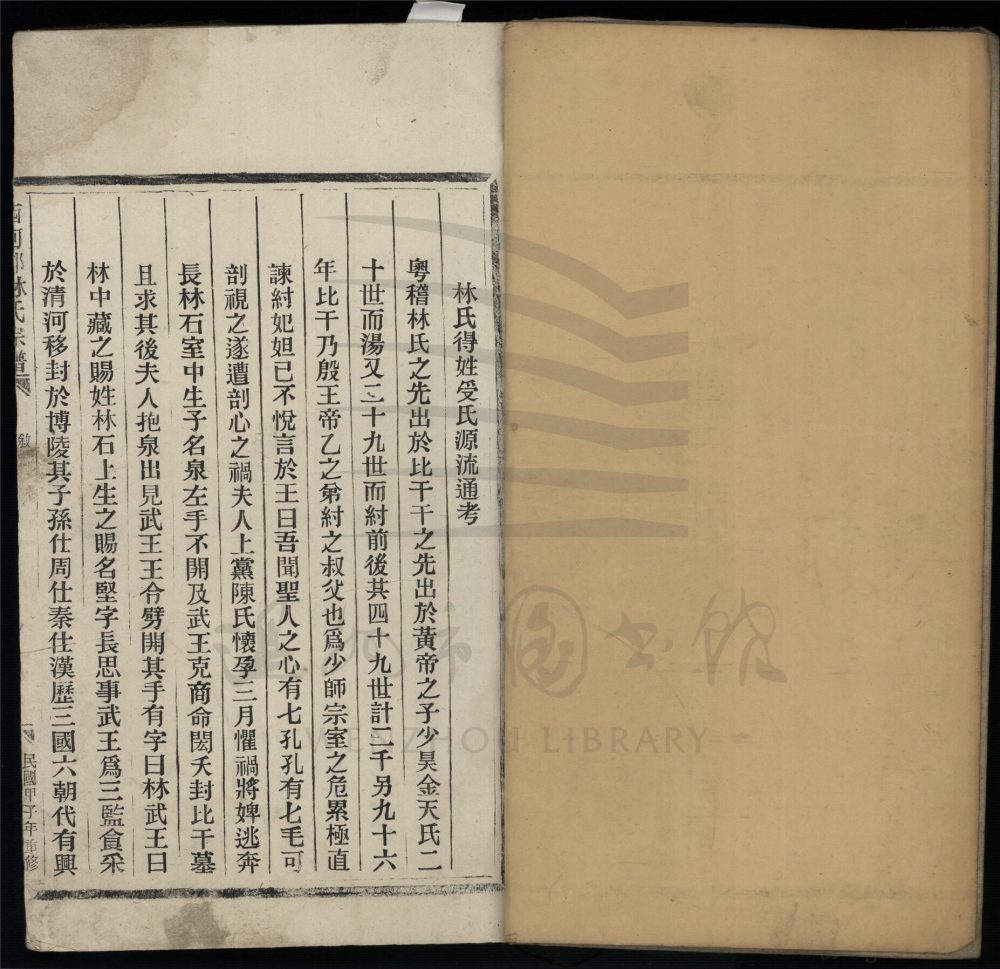 林氏得姓受氏源流通考
粵稽林氏之先出於比干干之先出於黃帝之子少昊金天氏二
十世而湯又二十九世而紂前後其四十九世計二千另九十六
年比干乃殷王帝乙之弟紂之叔父也爲少師宗室之危累極直
諫紂妃妲己不悅言於王曰吾聞聖人之心有七孔孔有七毛可
剖視之遂遭剖心之禍夫人上黨陳氏懷孕三月懼禍將婢逃奔
長林石室中生子名泉左手不開及武王克商命閎夭封比干墓
且求其後夫人抱泉出見武王王令劈開其手有字曰林武王曰
林中藏之賜姓林石上生之賜名堅字長思事武王爲三監食采
於清河移封於博陵其子孫仕周仕秦仕漢歷三國六朝代有興
西河郡林氏宗譜
敘
一
民國甲子年重修
溫州市圖書館
WENZHOU LIBRARY